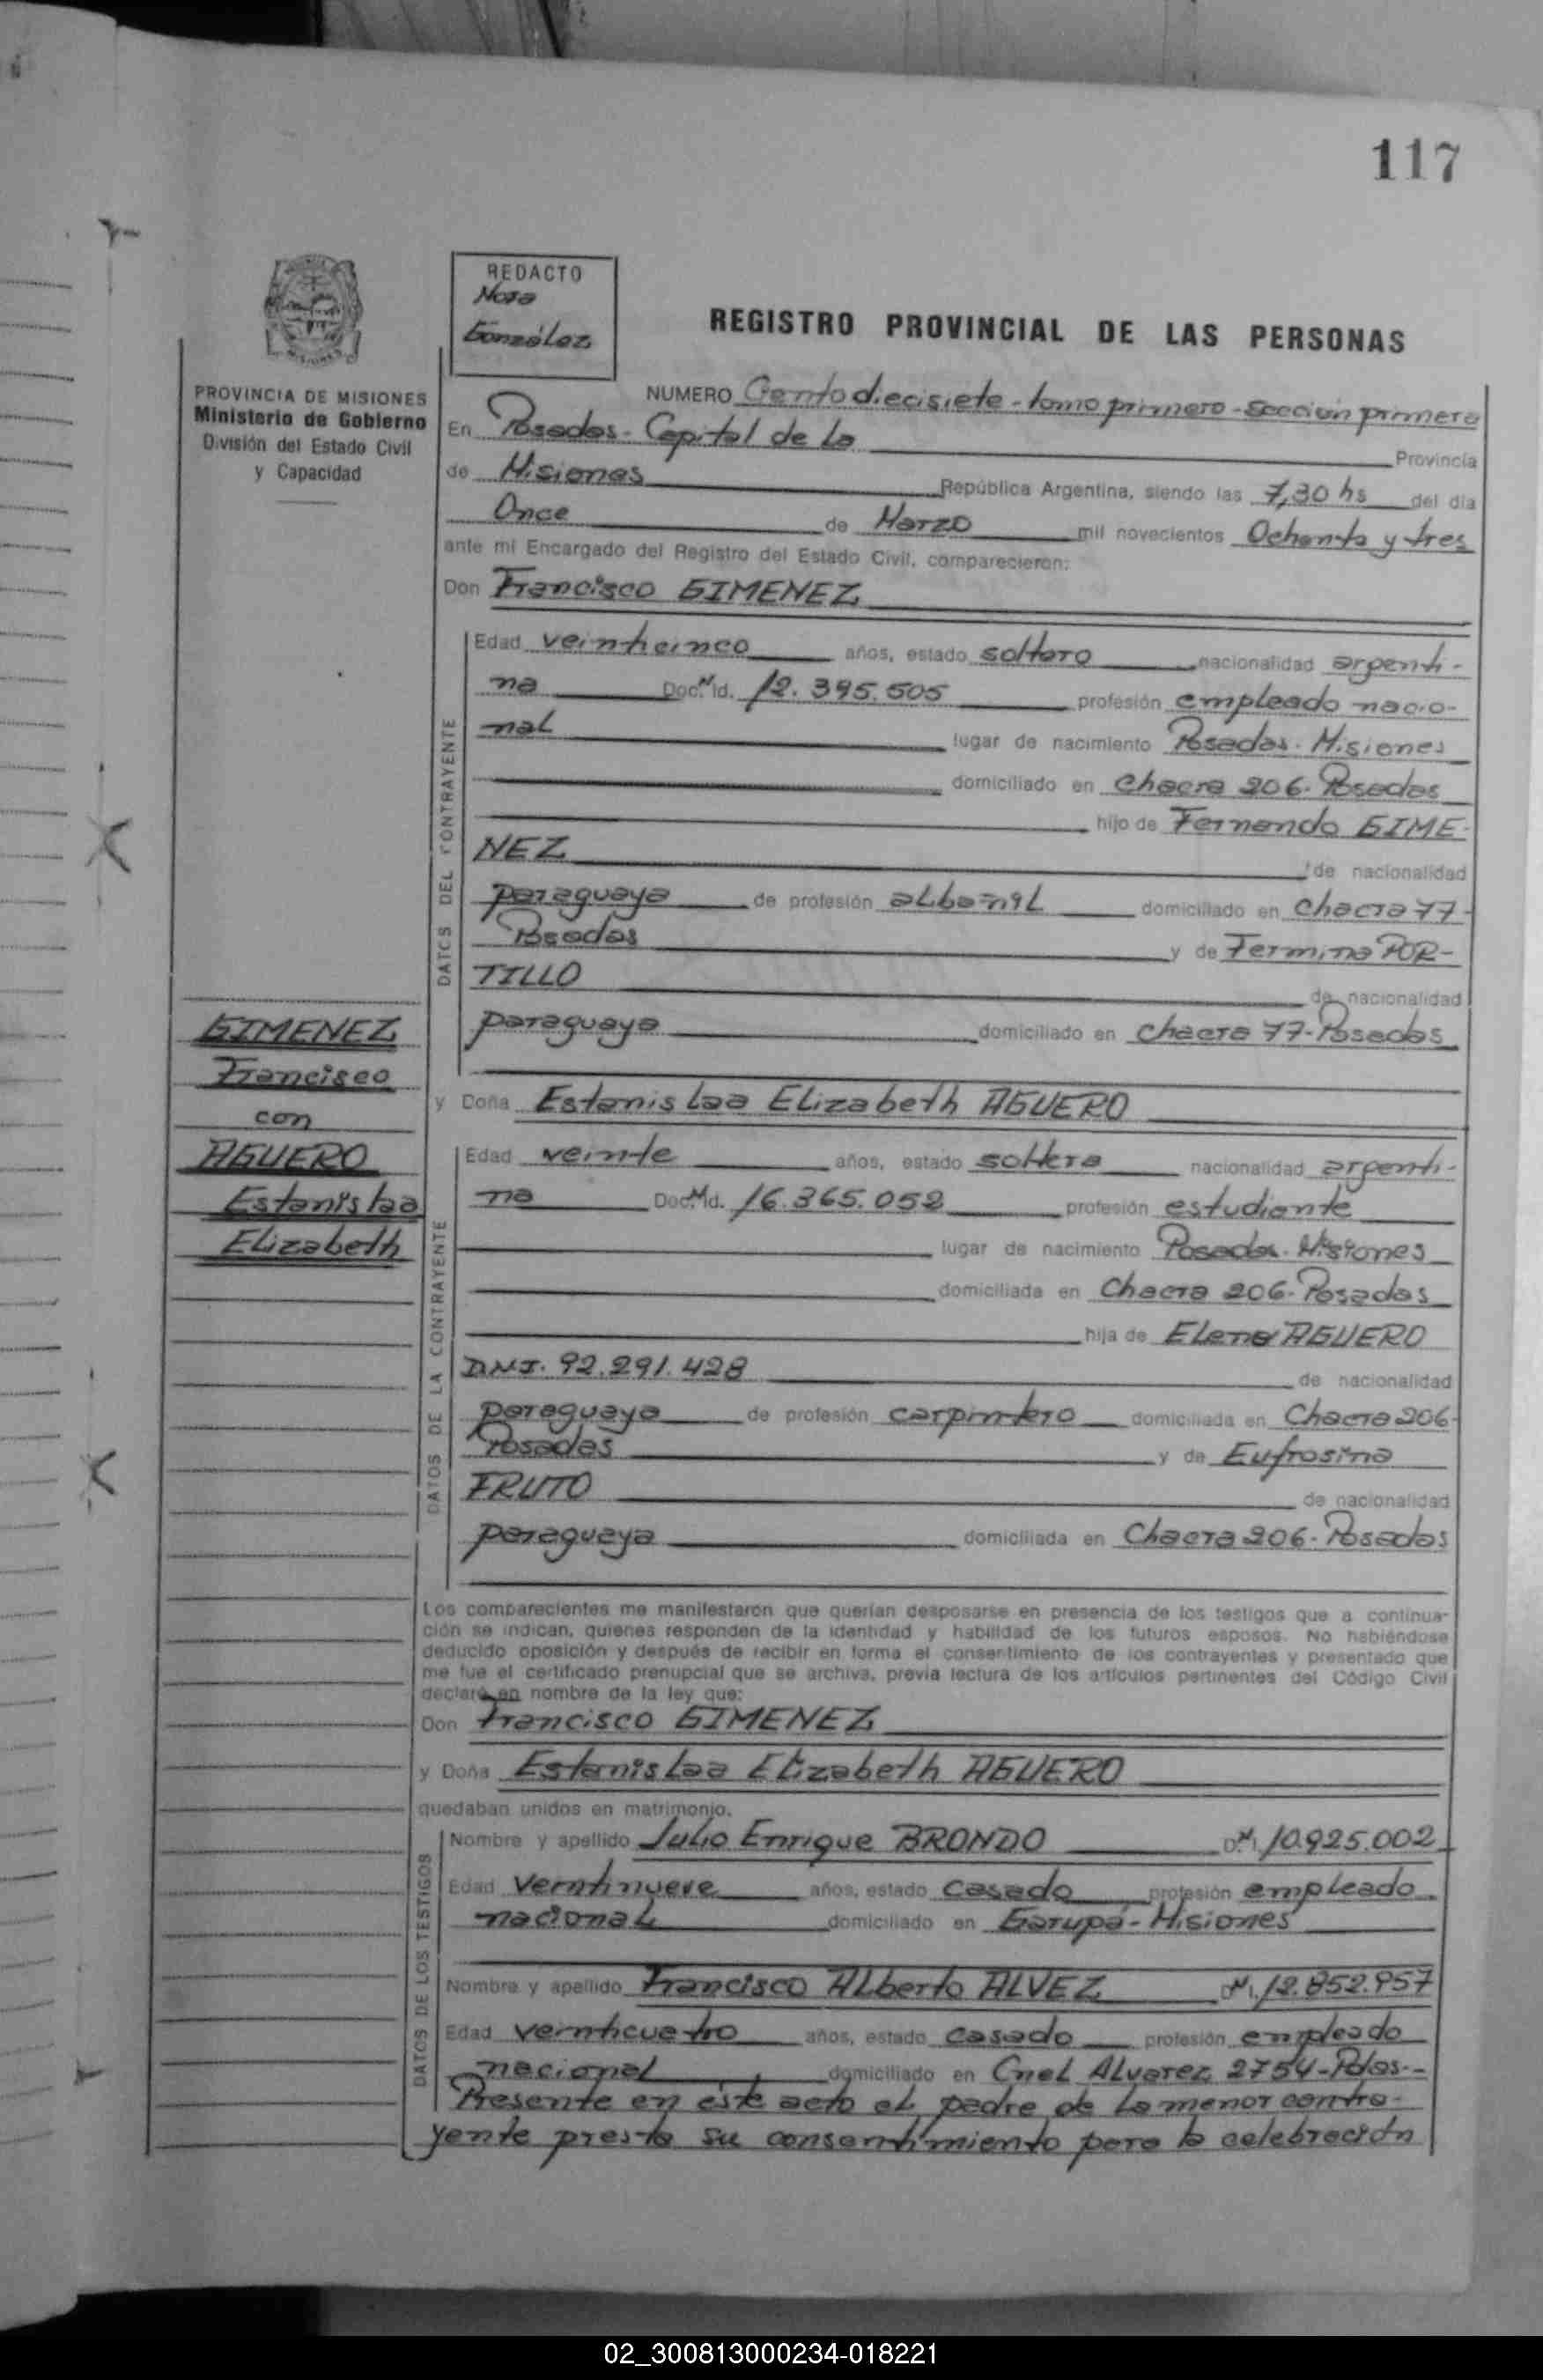 117
REDACTO
González
REGISTRO PROVINCIAL DE LAS PERSONAS
PROVINCIA DE MISIONES
Ministerio de Gobierno
División del Estado Civil
y Capacidad
NUMERO Ciento diecisiete - tomo primero - sección primera
En Posadas - Capital de la Provincia
de Misiones República Argentina, siendo las 7,30 hs del día
Once de Marzo mil novecientos Ochenta y tres
ante mí Encargado del Registro del Estado Civil, comparecieron:
Don Francisco GIMENEZ
DATOS DEL CONTRAYENTE
Edad veinticinco años, estado soltero nacionalidad argenti-
na Doc. Id. 12.395.505 profesión empleado nacio-
nal lugar de nacimiento Posadas - Misiones
domiciliado en Chacra 206 - Posadas
hijo de Fernando GIME-
NEZ de nacionalidad
paraguaya de profesión albañil domiciliado en Chacra 77-
Posadas y de Fermina POR-
TILLO de nacionalidad
paraguaya domiciliado en Chacra 77 - Posadas
GIMENEZ
Francisco
con
AGUERO
Estanislaa
Elizabeth
y Doña Estanislaa Elizabeth AGUERO
DATOS DE LA CONTRAYENTE
Edad veinte años, estado soltera nacionalidad argenti-
na Doc. Id. 16.365.052 profesión estudiante
lugar de nacimiento Posadas - Misiones
domiciliada en Chacra 206 - Posadas
hija de Eleno AGUERO
DNI. 92.291.428 de nacionalidad
paraguaya de profesión carpintero domiciliada en Chacra 206-
Posadas y de Eufrosina
FRUTO de nacionalidad
paraguaya domiciliada en Chacra 206 - Posadas
Los comparecientes me manifestaron que querían desposarse en presencia de los testigos que a continua-
ción se indican, quienes responden de la identidad y habilidad de los futuros esposos. No habiéndose
deducido oposición y después de recibir en forma el consentimiento de los contrayentes y presentado que
me fue el certificado prenupcial que se archiva, previa lectura de los artículos pertinentes del Código Civil
declaro en nombre de la ley que:
Don Francisco GIMENEZ
y Doña Estanislaa Elizabeth AGUERO
quedaban unidos en matrimonio.
DATOS DE LOS TESTIGOS
Nombre y apellido Julio Enrique BRONDO 10.925.002
Edad veintinueve años, estado casado profesión empleado
nacional domiciliado en Garupá - Misiones
Nombre y apellido Francisco Alberto ALVEZ 12.852.957
Edad veinticuatro años, estado casado profesión empleado
nacional domiciliado en Cnel Alvarez 2754 - Pdas.-
Presente en éste acto el padre de la menor contra-
yente presta su consentimiento para la celebración
02_300813000234-018221